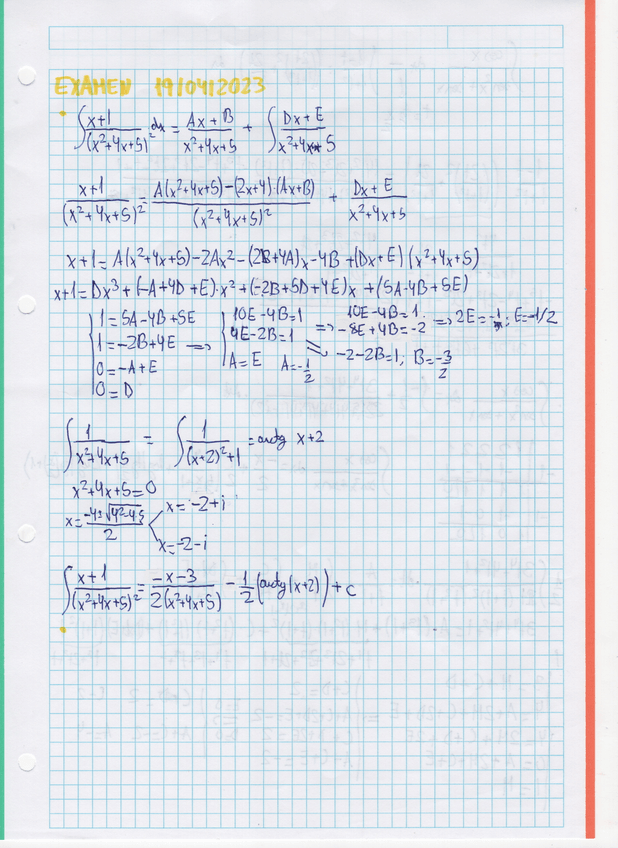 EXAMEN 19/04/2023
∫ (x+1)/(x²+4x+5)² dx = (Ax+B)/(x²+4x+5) + ∫ (Dx+E)/(x²+4x+5)
(x+1)/(x²+4x+5)² = (A(x²+4x+5)-(2x+4)·(Ax+B))/(x²+4x+5)² + (Dx+E)/(x²+4x+5)
x+1 = A(x²+4x+5)-2Ax²-(2B+4A)x-4B+(Dx+E)(x²+4x+5)
x+1 = Dx³+(-A+4D+E)·x²+(-2B+5D+4E)x+(5A-4B+5E)
1=5A-4B+5E 10E-4B=1 10E-4B=1
1=-2B+4E => 4E-2B=1 => -8E+4B=-2 => 2E=-1; E=-1/2
0=-A+E A=E A=-1/2 => -2-2B=1; B=-3/2
0=D
∫ 1/(x²+4x+5) = ∫ 1/((x+2)²+1) = arctg x+2
x²+4x+5=0
x=(-4±√(4²-4·5))/2 x=-2+i
x=-2-i
∫ (x+1)/(x²+4x+5)² = (-x-3)/(2(x²+4x+5)) - 1/2 (arctg(x+2)) + c